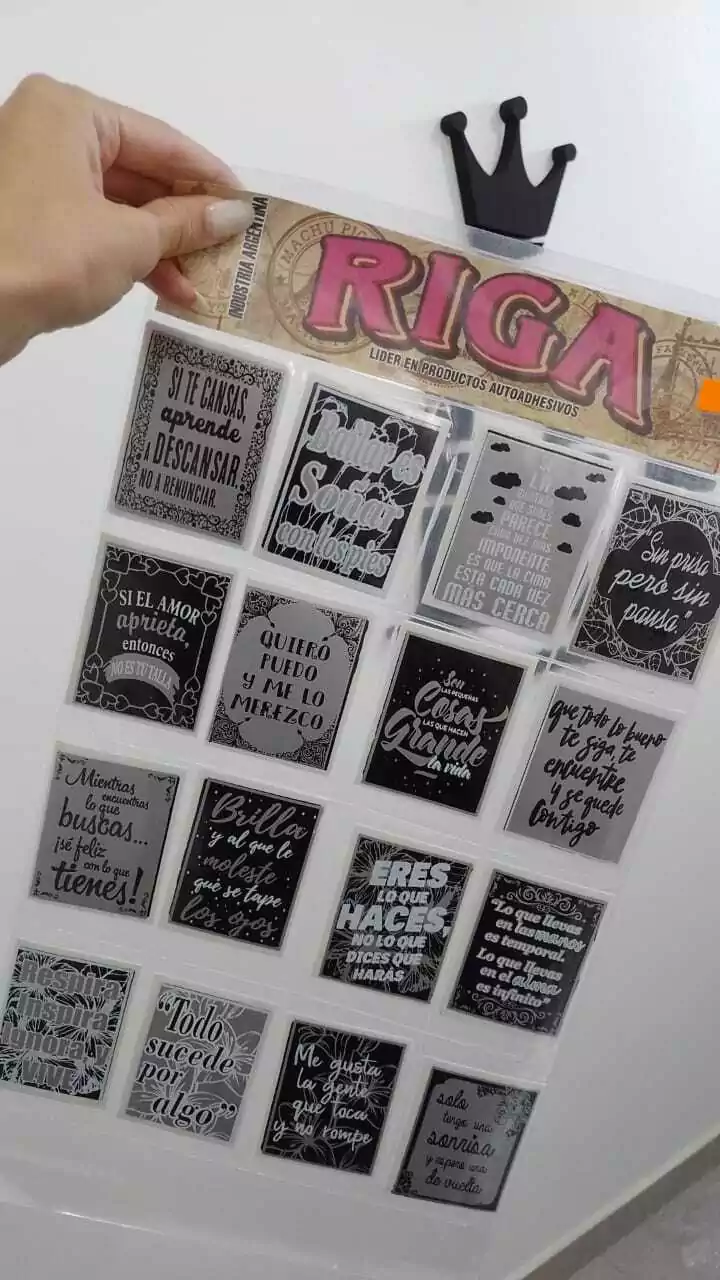 INDUSTRIA ARGENTINA
MACHU PIC
RIGA
LIDER EN PRODUCTOS AUTOADHESIVOS
SI TE CANSAS,
aprende
A DESCANSAR,
NO A RENUNCIAR.
Bailar es
Soñar
con los pies
SI
LA
MONTAÑA
QUE SUBES
PARECE
CADA VEZ MAS
IMPONENTE
ES QUE LA CIMA
ESTA CADA VEZ
MÁS CERCA
"Sin prisa
pero sin
pausa"
SI EL AMOR
aprieta,
entonces
NO ES TU TALLA
QUIERO
PUEDO
Y ME LO
MEREZCO
Son
LAS PEQUEÑAS
Cosas
LAS QUE HACEN
Grande
la vida
que todo lo bueno
te siga, te
encuentre
y se quede
contigo
Mientras
encuentras
lo que
buscas...
¡sé feliz
con lo que
tienes!
Brilla
y al que le
moleste
que se tape
los ojos
ERES
LO QUE
HACES,
NO LO QUE
DICES QUE
HARÁS
"Lo que llevas
en las manos
es temporal.
Lo que llevas
en el alma
es infinito"
Respira
Inspira
Ignora y
VIVE
"Todo
sucede
por
algo"
Me gusta
la gente
que toca
y no rompe
solo
tengo una
sonrisa
y espero una
de vuelta